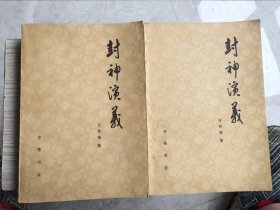 封神演義
許仲琳 編
齊魯書社
封神演義
許仲琳 編
齊魯書社